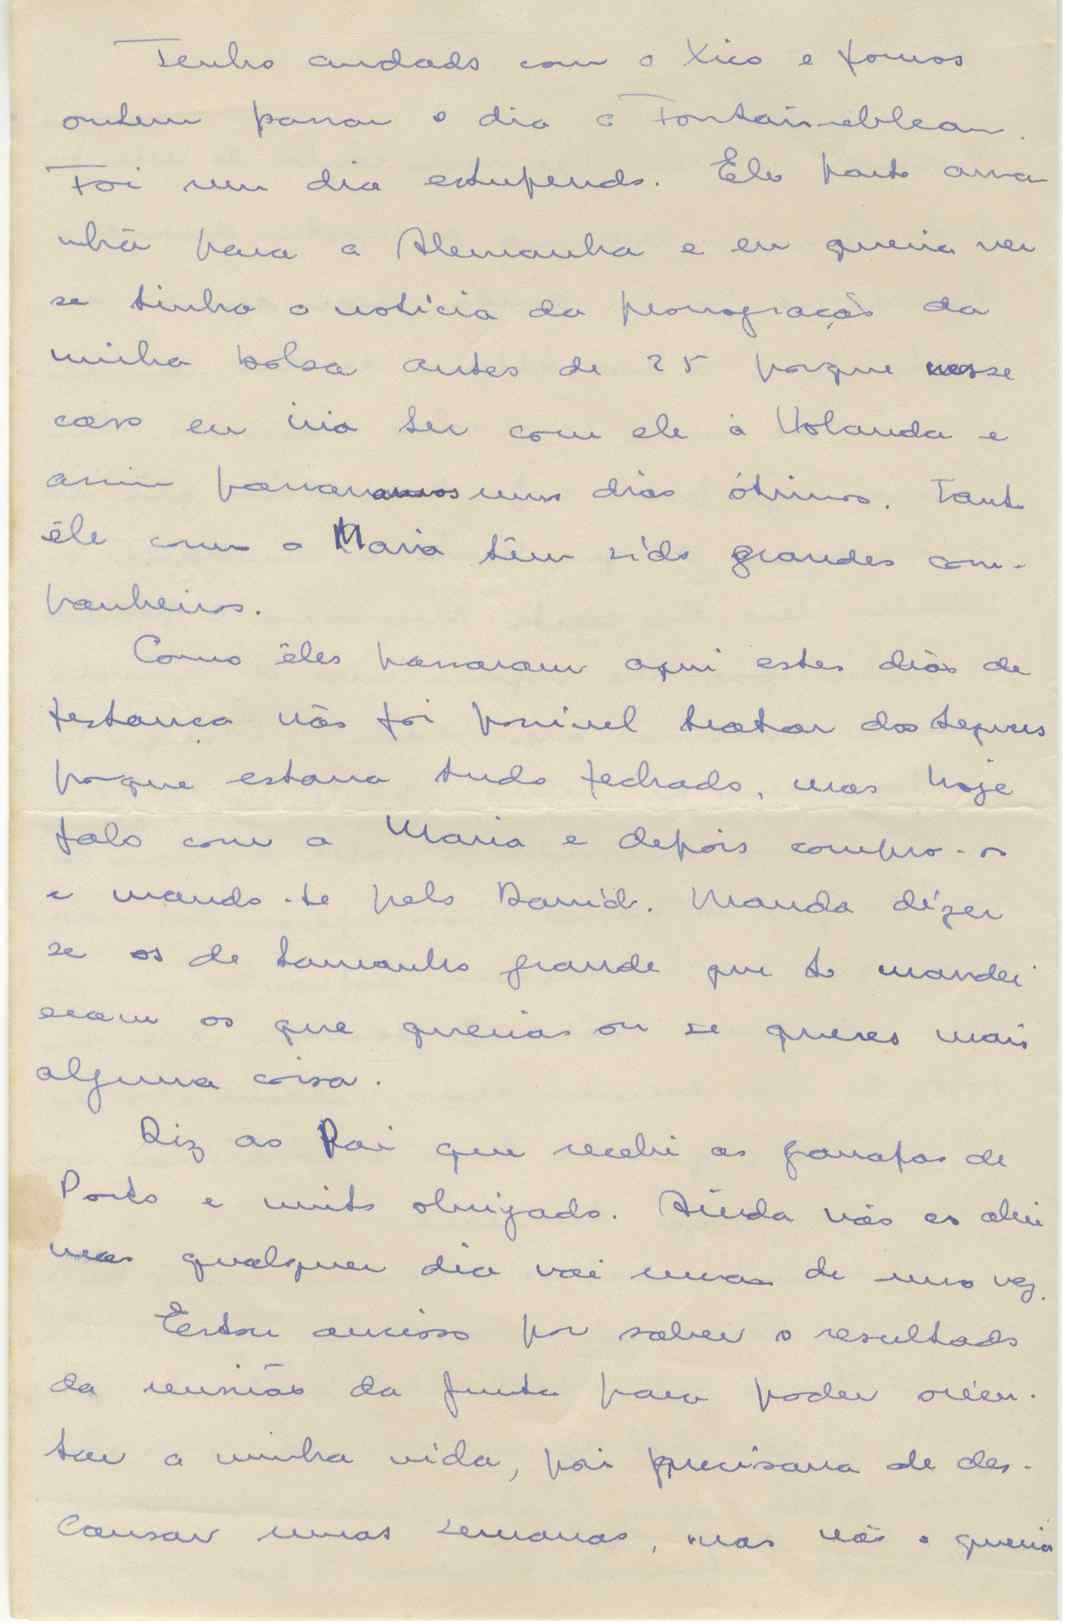 Tenho andado com o Xico e fomos
ontem passar o dia a Fontainebleau.
Foi um dia estupendo. Ele parte ama
nhã para a Alemanha e eu queria ver
se tinha a notícia da prorrogação da
minha bolsa antes de 25 porque nesse
caso eu iria ter com ele à Holanda e
assim passavamos uns dias ótimos. Tanto
êle como a Maria têm sido grandes com-
panheiros.
Como êles passaram aqui estes dias de
festança não foi possivel tratar dos
porque estava tudo fechado, mas hoje
falo com a Maria e depois compro-os
e mando-te pelo David. Manda dizer
se os de tamanho grande que te mandei
eram os que querias ou se queres mais
alguma coisa.
Diz ao Pai que recebi as garrafas de
Porto e muito obrigado. Ainda não as abri
mas qualquer dia vai uma de uma vez.
Estou ancioso por saber o resultado
da reunião da Junta para poder orien-
tar a minha vida, pois precisava de des-
cansar umas semanas, mas não o queria